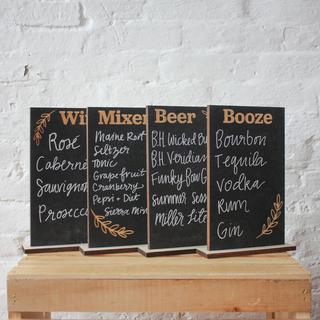 Wi
Rosé
Caberne
Sauvignon
Prosecco
Mixer
Maine Root
Seltzer
Tonic
Grapefruit
Cranberry
Pepsi + Diet
Sierra Mis
Beer
B.H. Wicked
B.H. Veridian
Funky Bow
Summer Sess
Miller Lite
Booze
Bourbon
Tequila
Vodka
Rum
Gin